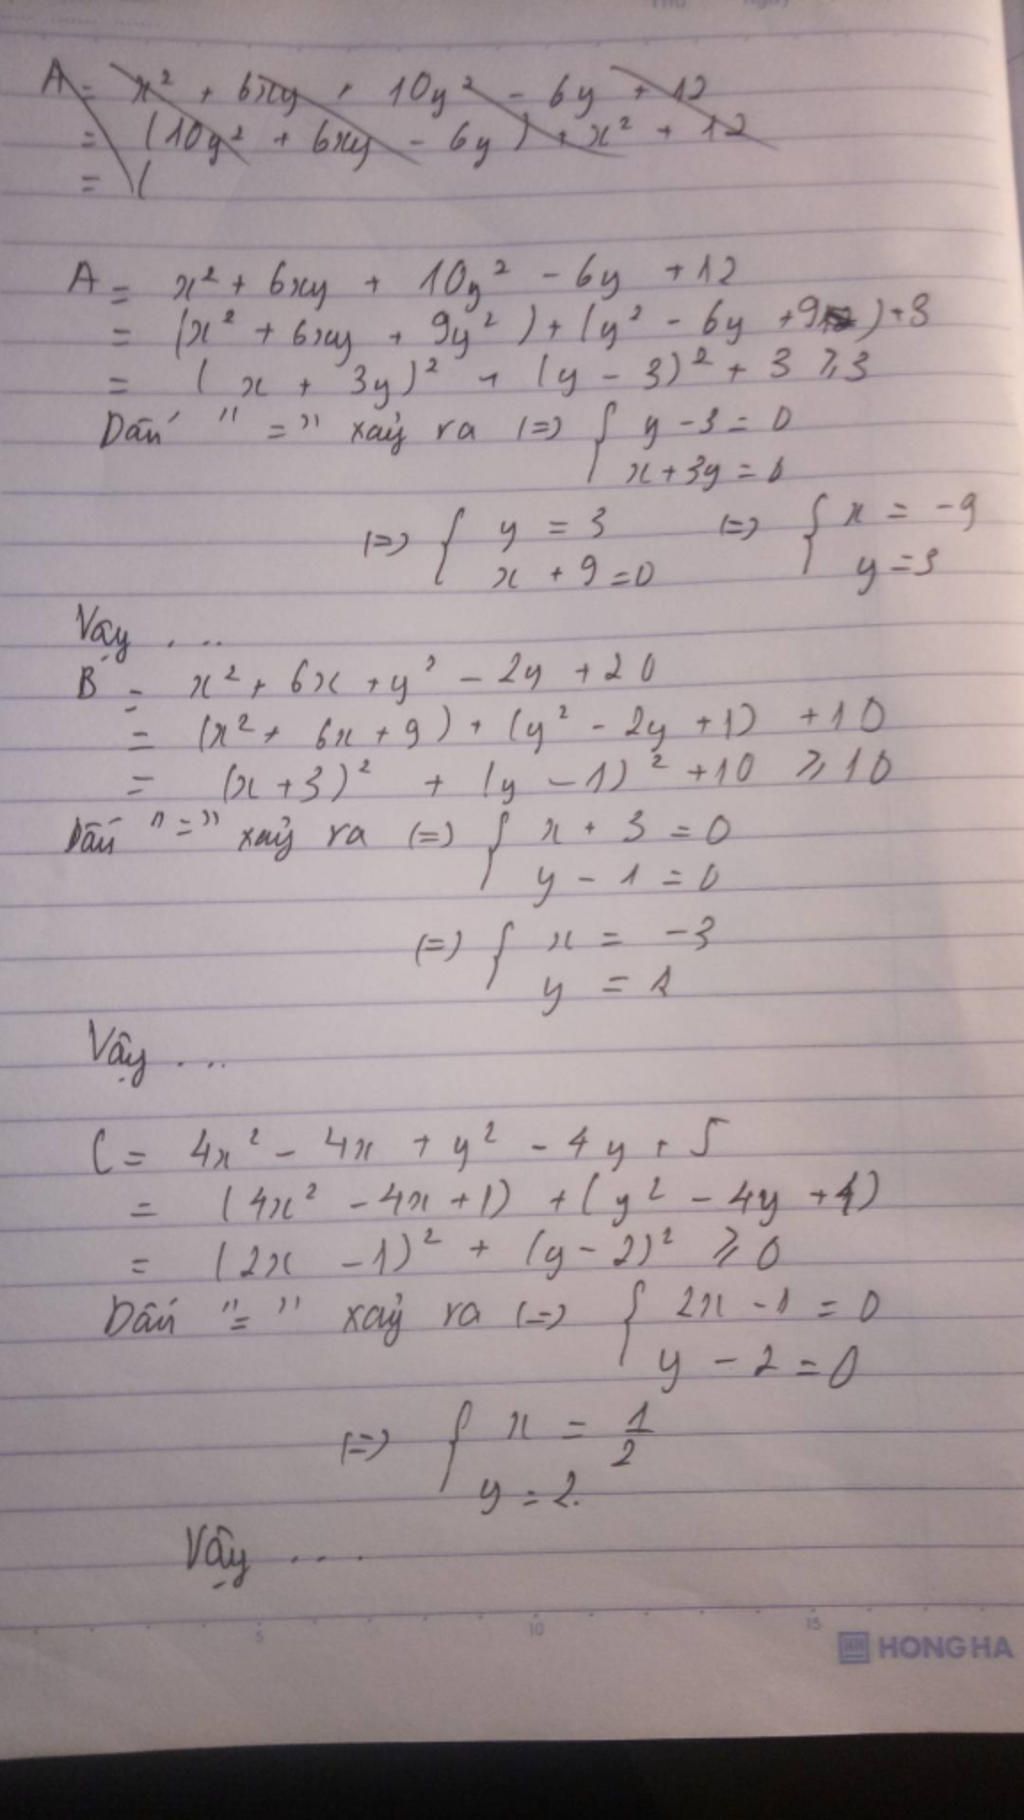 A = x² + 6xy + 10y² - 6y + 12
= (10y² + 6xy - 6y) + x² + 12
= (
A = x² + 6xy + 10y² - 6y + 12
= (x² + 6xy + 9y²) + (y² - 6y + 9) + 3
= (x + 3y)² + (y - 3)² + 3 ⩾ 3
Dấu "=" xảy ra (=) { y - 3 = 0
x + 3y = 0
(=) { y = 3 (=) { x = -9
x + 9 = 0 y = 3
Vậy ....
B = x² + 6x + y² - 2y + 20
= (x² + 6x + 9) + (y² - 2y + 1) + 10
= (x + 3)² + (y - 1)² + 10 ⩾ 10
Dấu "=" xảy ra (=) { x + 3 = 0
y - 1 = 0
(=) { x = -3
y = 1
Vậy ...
C = 4x² - 4x + y² - 4y + 5
= (4x² - 4x + 1) + (y² - 4y + 4)
= (2x - 1)² + (y - 2)² ⩾ 0
Dấu "=" xảy ra (=) { 2x - 1 = 0
y - 2 = 0
(=) { x = 1/2
y = 2.
Vậy ....
5 10 15
HONG HA